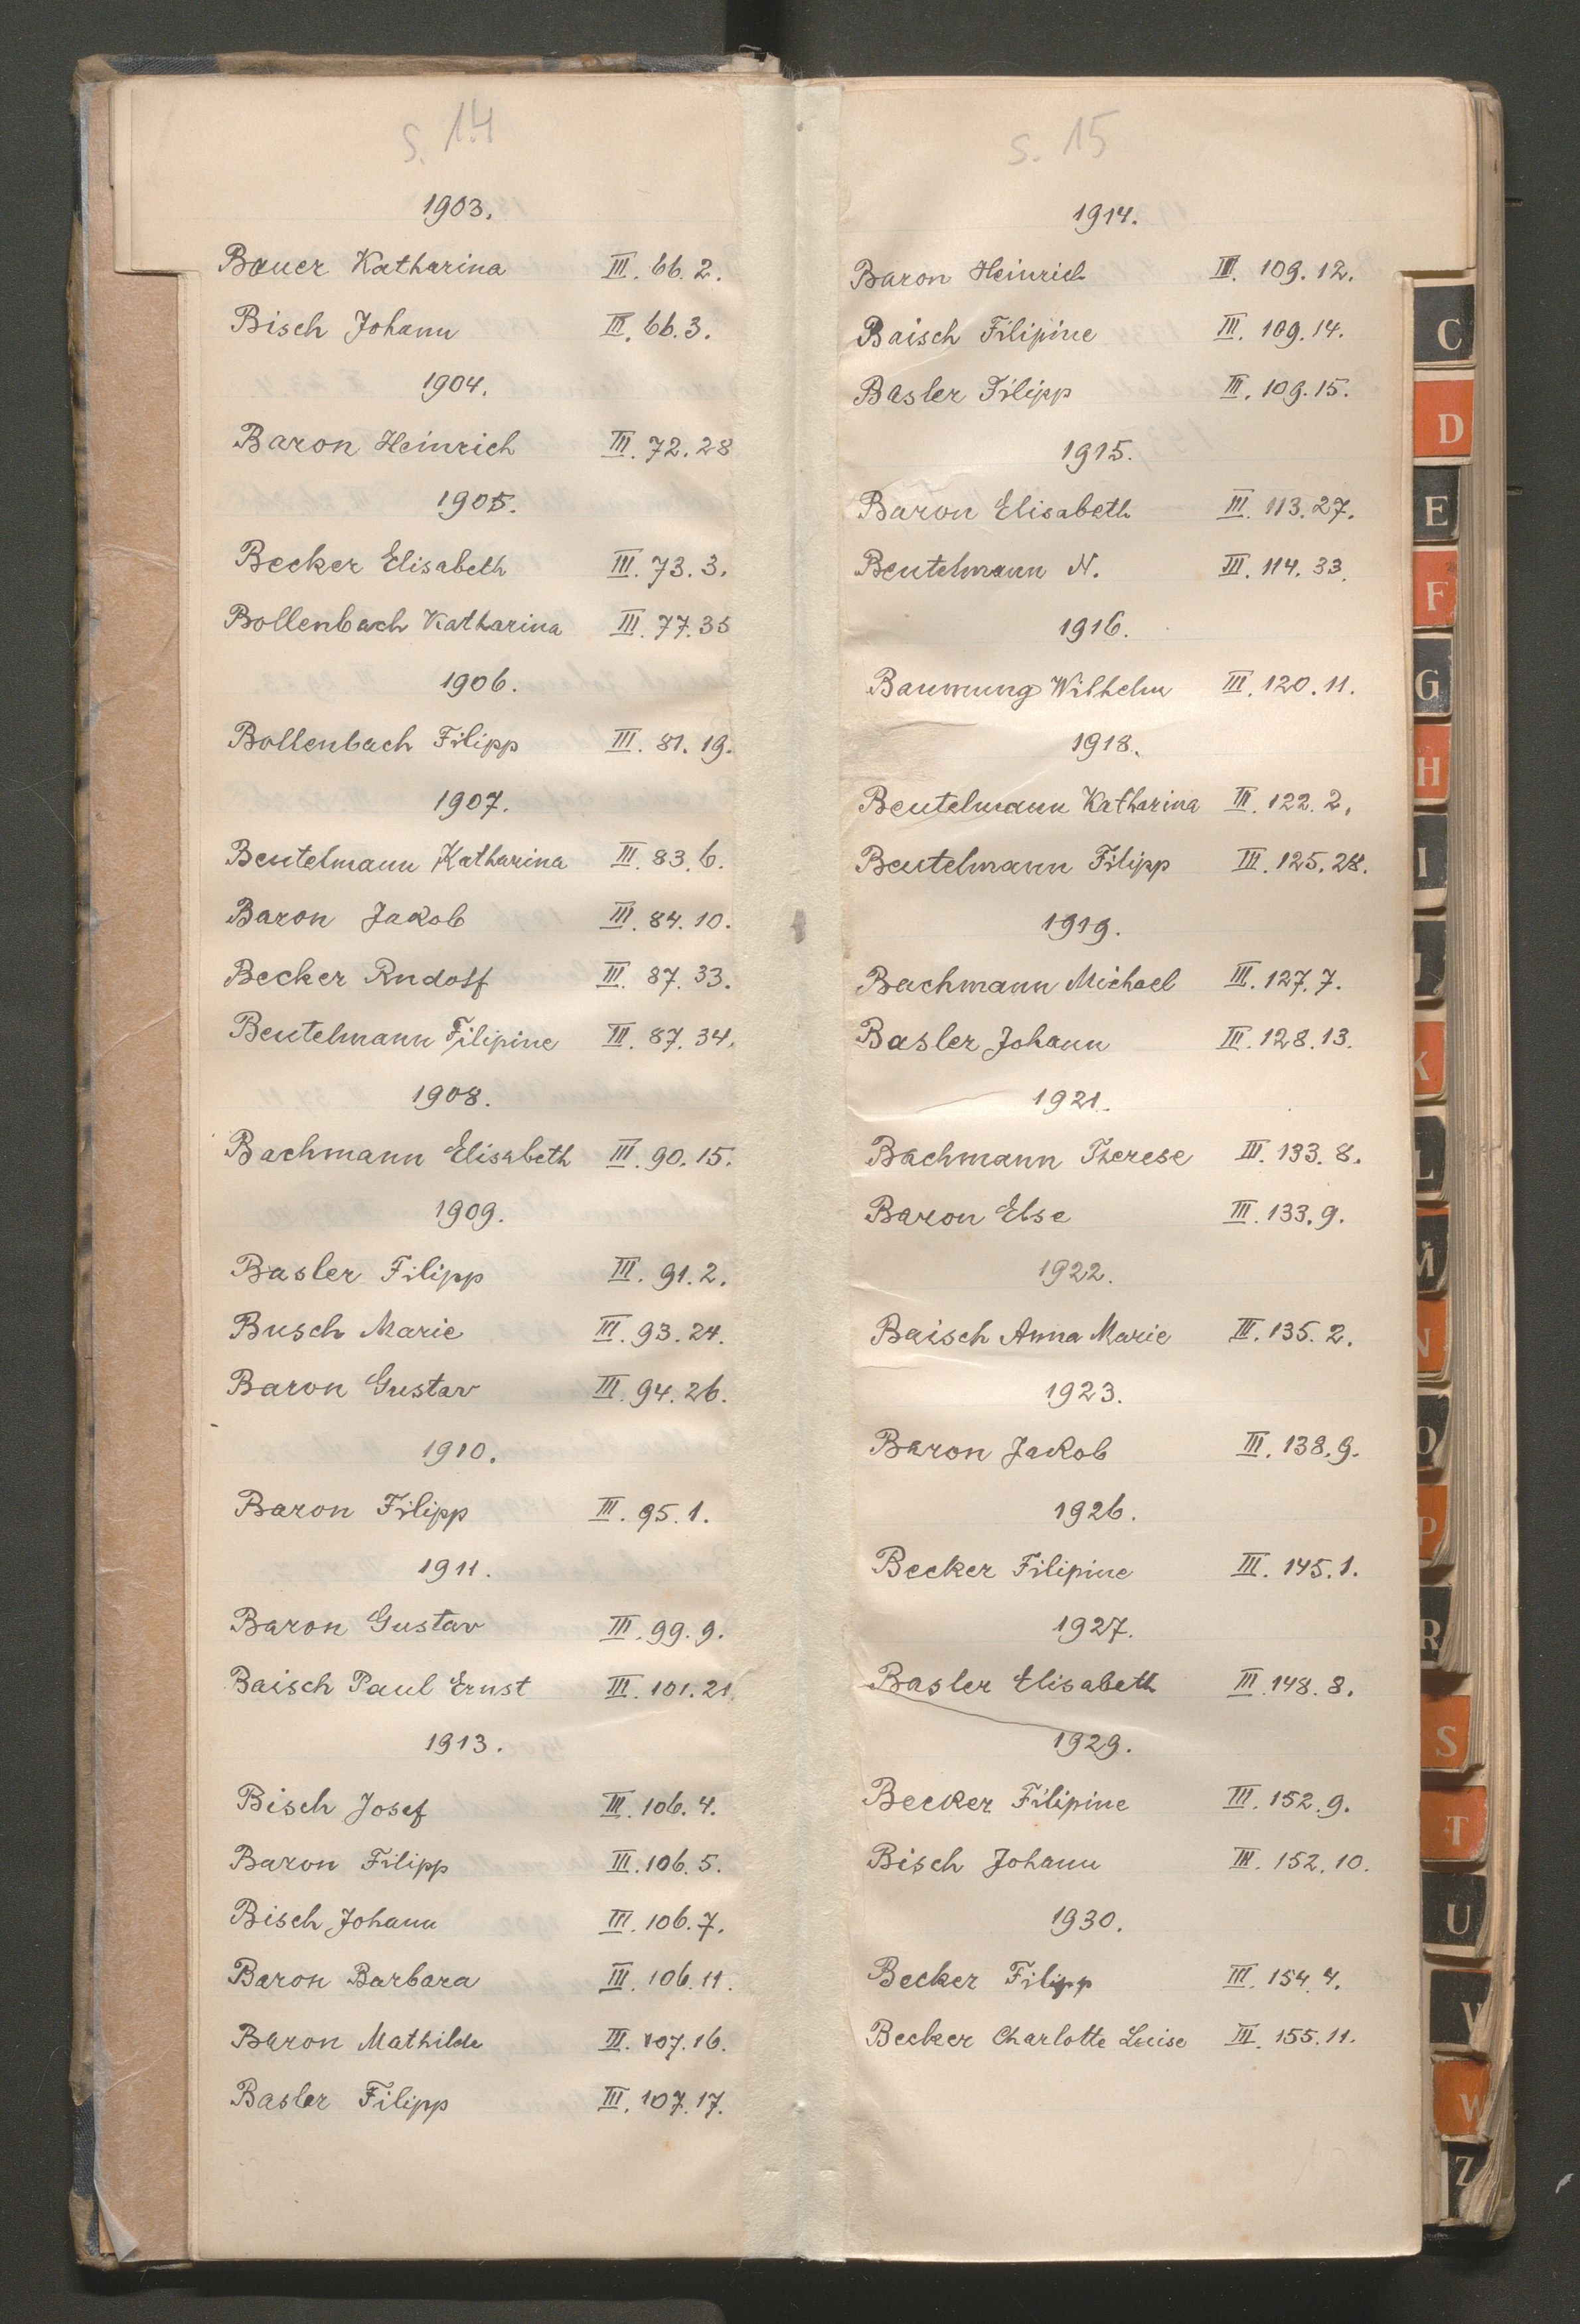 S. 14
1903.
Bauer Katharina III. 66. 2.
Bisch Johann III. 66. 3.
1904.
Baron Heinrich III. 72. 28
1905.
Becker Elisabeth III. 73. 3.
Bollenbach Katharina III. 77. 35
1906.
Bollenbach Filipp III. 81. 19.
1907.
Beutelmann Katharina III. 83. 6.
Baron Jakob III. 84. 10.
Becker Rudolf III. 87. 33.
Beutelmann Filipine III. 87. 34.
1908.
Bachmann Elisabeth III. 90. 15.
1909.
Basler Filipp III. 91. 2.
Busch Marie III. 93. 24.
Baron Gustav III. 94. 26.
1910.
Baron Filipp III. 95. 1.
1911.
Baron Gustav III. 99. 9.
Baisch Paul Ernst III. 101. 21.
1913.
Bisch Josef III. 106. 4.
Baron Filipp III. 106. 5.
Bisch Johann III. 106. 7.
Baron Barbara III. 106. 11.
Baron Mathilde III. 107. 16.
Basler Filipp III. 107. 17.
S. 15
1914.
Baron Heinrich III. 109. 12.
Baisch Filipine III. 109. 14.
Basler Filipp III. 109. 15.
1915.
Baron Elisabeth III. 113. 27.
Beutelmann N. III. 114. 33.
1916.
Baumung Wilhelm III. 120. 11.
1918.
Beutelmann Katharina III. 122. 2.
Beutelmann Filipp III. 125. 28.
1919.
Bachmann Michael III. 127. 7.
Basler Johann III. 128. 13.
1921.
Bachmann Therese III. 133. 8.
Baron Else III. 133. 9.
1922.
Baisch Anna Marie III. 135. 2.
1923.
Baron Jakob III. 138. 9.
1926.
Becker Filipine III. 145. 1.
1927.
Basler Elisabeth III. 148. 8.
1929.
Becker Filipine III. 152. 9.
Bisch Johann III. 152. 10.
1930.
Becker Filipp III. 154. 4.
Becker Charlotte Luise III. 155. 11.
C
D
E
F
G
H
I
K
L
M
N
O
P
R
S
T
U
V
W
Z